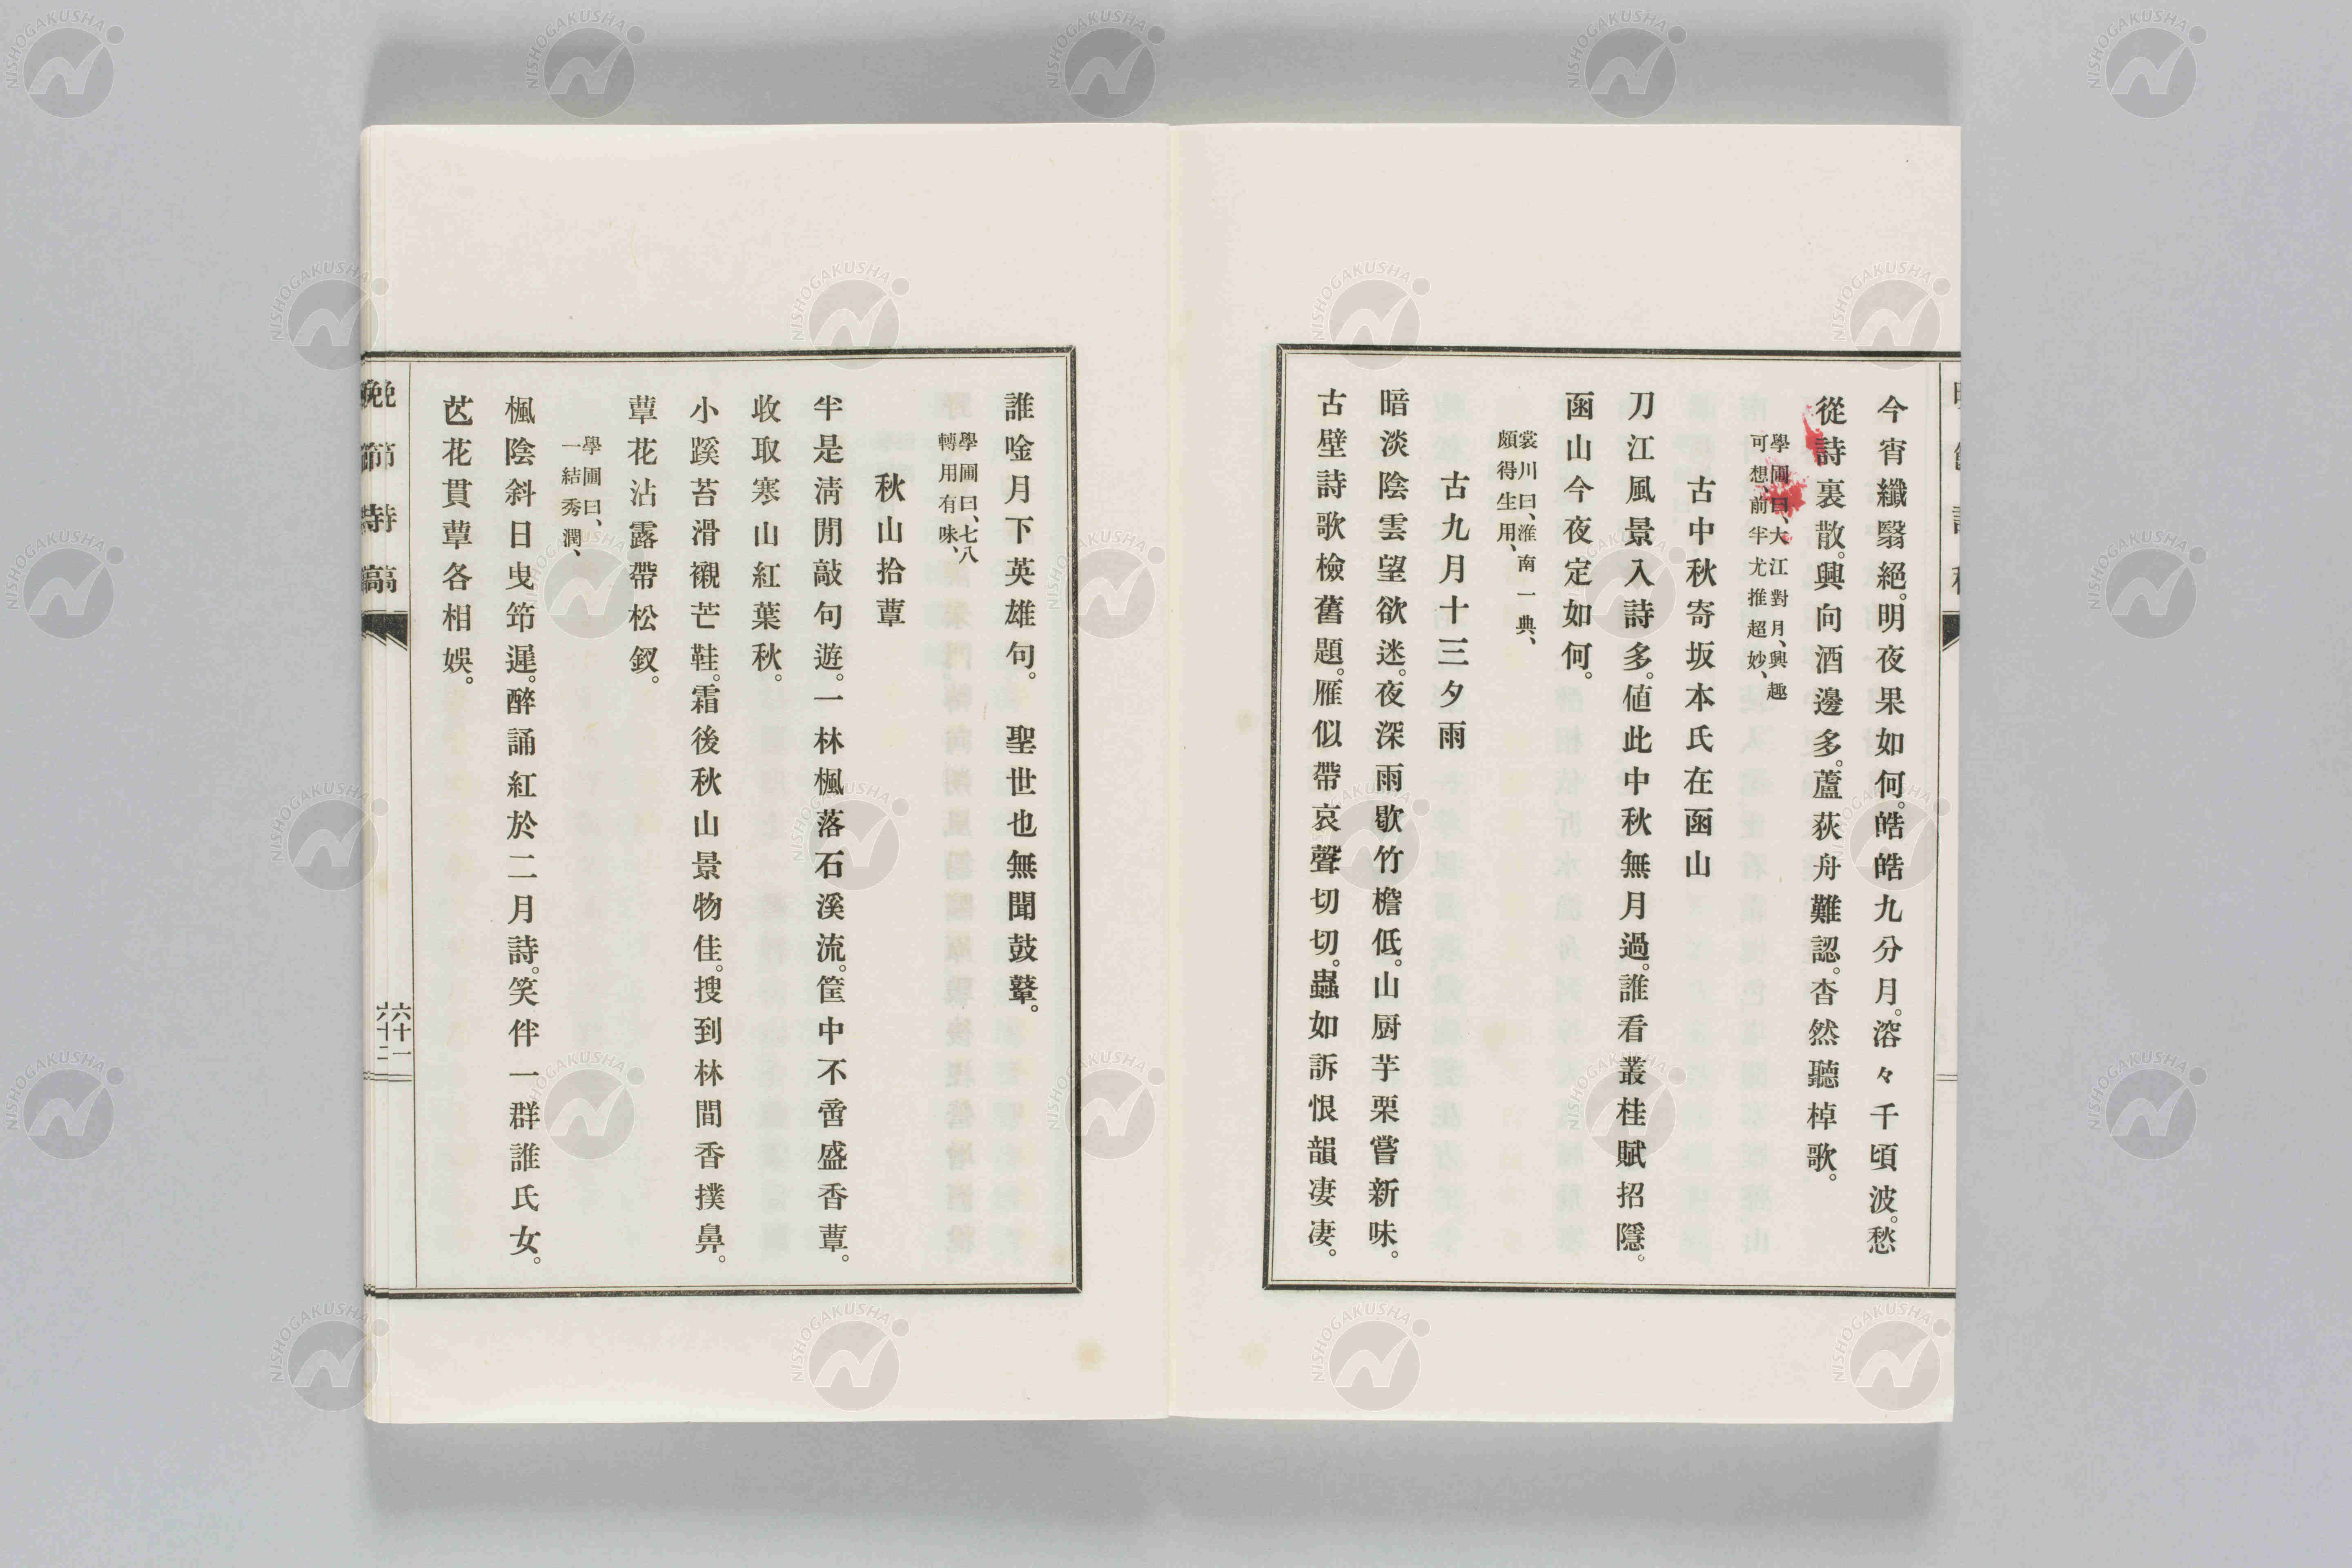 今宵纖翳絕。明夜果如何。皓皓九分月。溶々千頃波。愁
從詩裏散。興向酒邊多。蘆荻舟難認。杳然聽棹歌。
學圃曰、大江對月、興趣
可想、前半尤推超妙、
古中秋寄坂本氏在函山
刀江風景入詩多。値此中秋無月過。誰看叢桂賦招隱。
函山今夜定如何。
裳川曰、淮南一典、
頗得生用、
古九月十三夕雨
暗淡陰雲望欲迷。夜深雨歇竹檐低。山厨芋栗嘗新味。
古壁詩歌檢舊題。雁似帶哀聲切切。蟲如訴恨韻凄凄。
誰唫月下英雄句。 聖世也無聞鼓鼙。
學圃曰、七八
轉用有味、
秋山拾蕈
半是淸閒敲句遊。一林楓落石溪流。筐中不啻盛香蕈。
收取寒山紅葉秋。
小蹊苔滑襯芒鞋。霜後秋山景物佳。搜到林間香撲鼻。
蕈花沾露帶松釵。
學圃曰、
一結秀潤、
楓陰斜日曳筇遲。醉誦紅於二月詩。笑伴一群誰氏女。
花貫蕈各相娛。
晩節詩稿
六十一
六十二
NISHOGAKUSHA